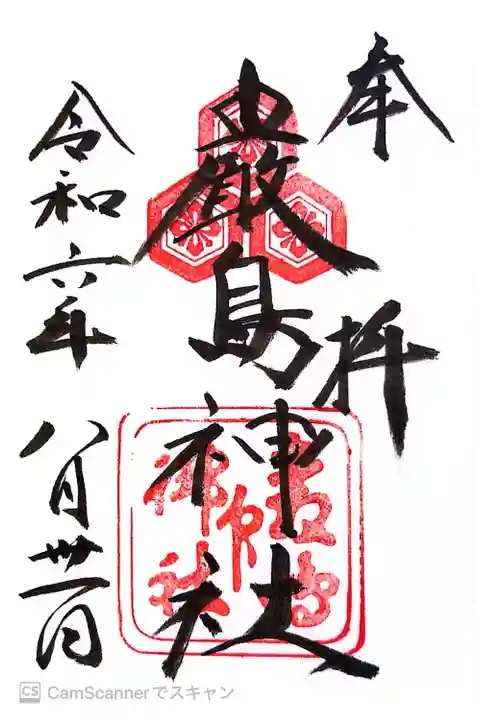 奉拝
厳島神社
令和六年 八月卅一日
CS CamScannerでスキャン